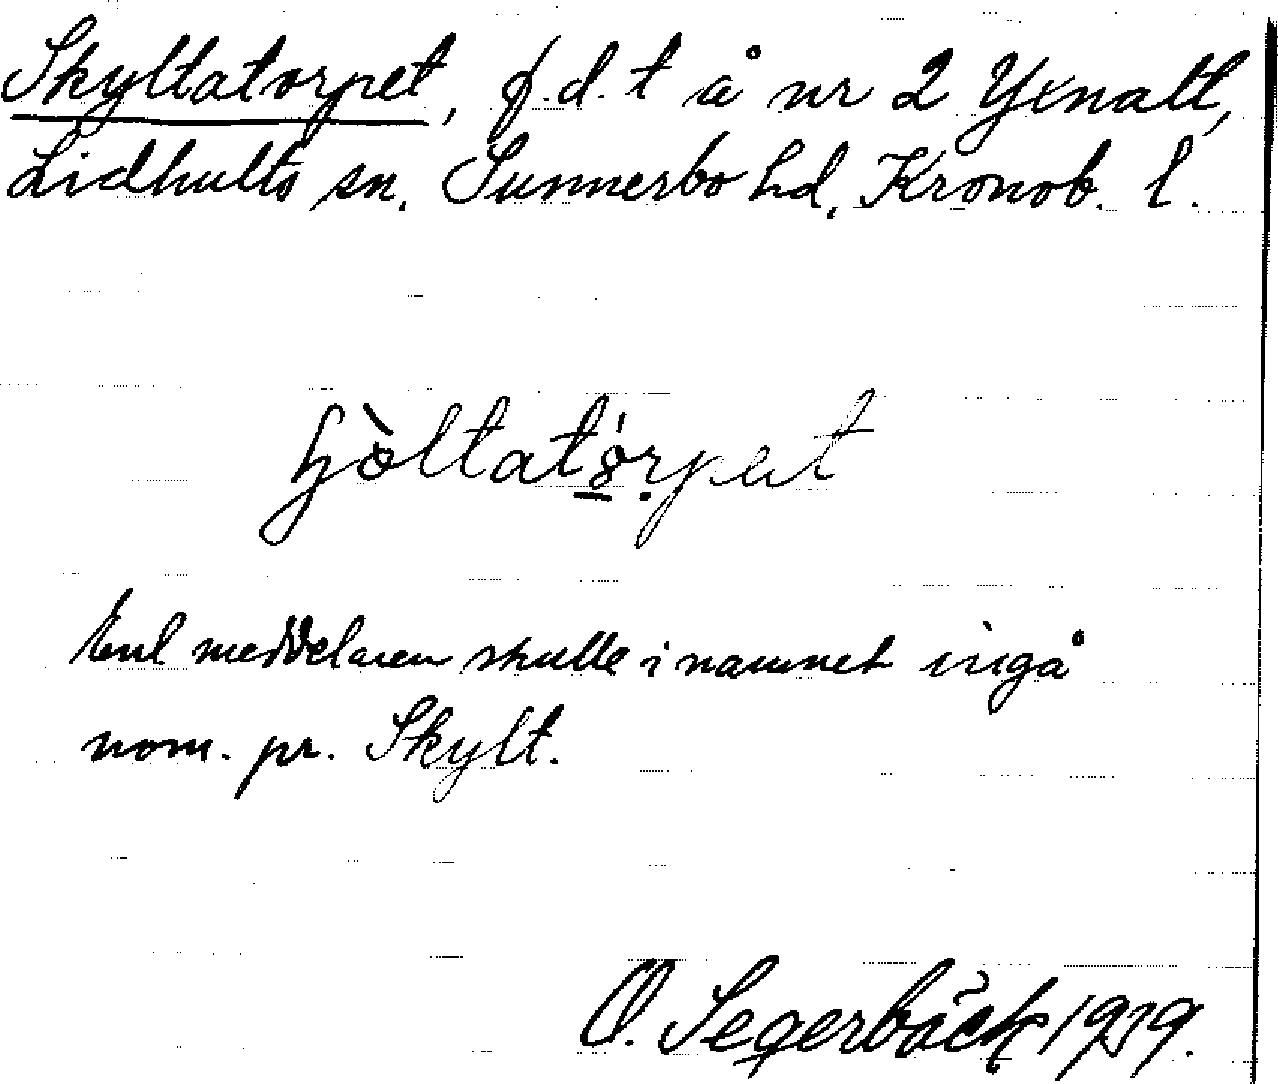 Skyltatorpet, f.d. t å nr 2 Yxnalt,
Lidhults sn. Sunnerbo hd. Kronob. l.
ɧòltatórpeit
Enl meddelaren skulle i namnet ingå
nom. pr. Skylt.
O. Segerbäck 1939.